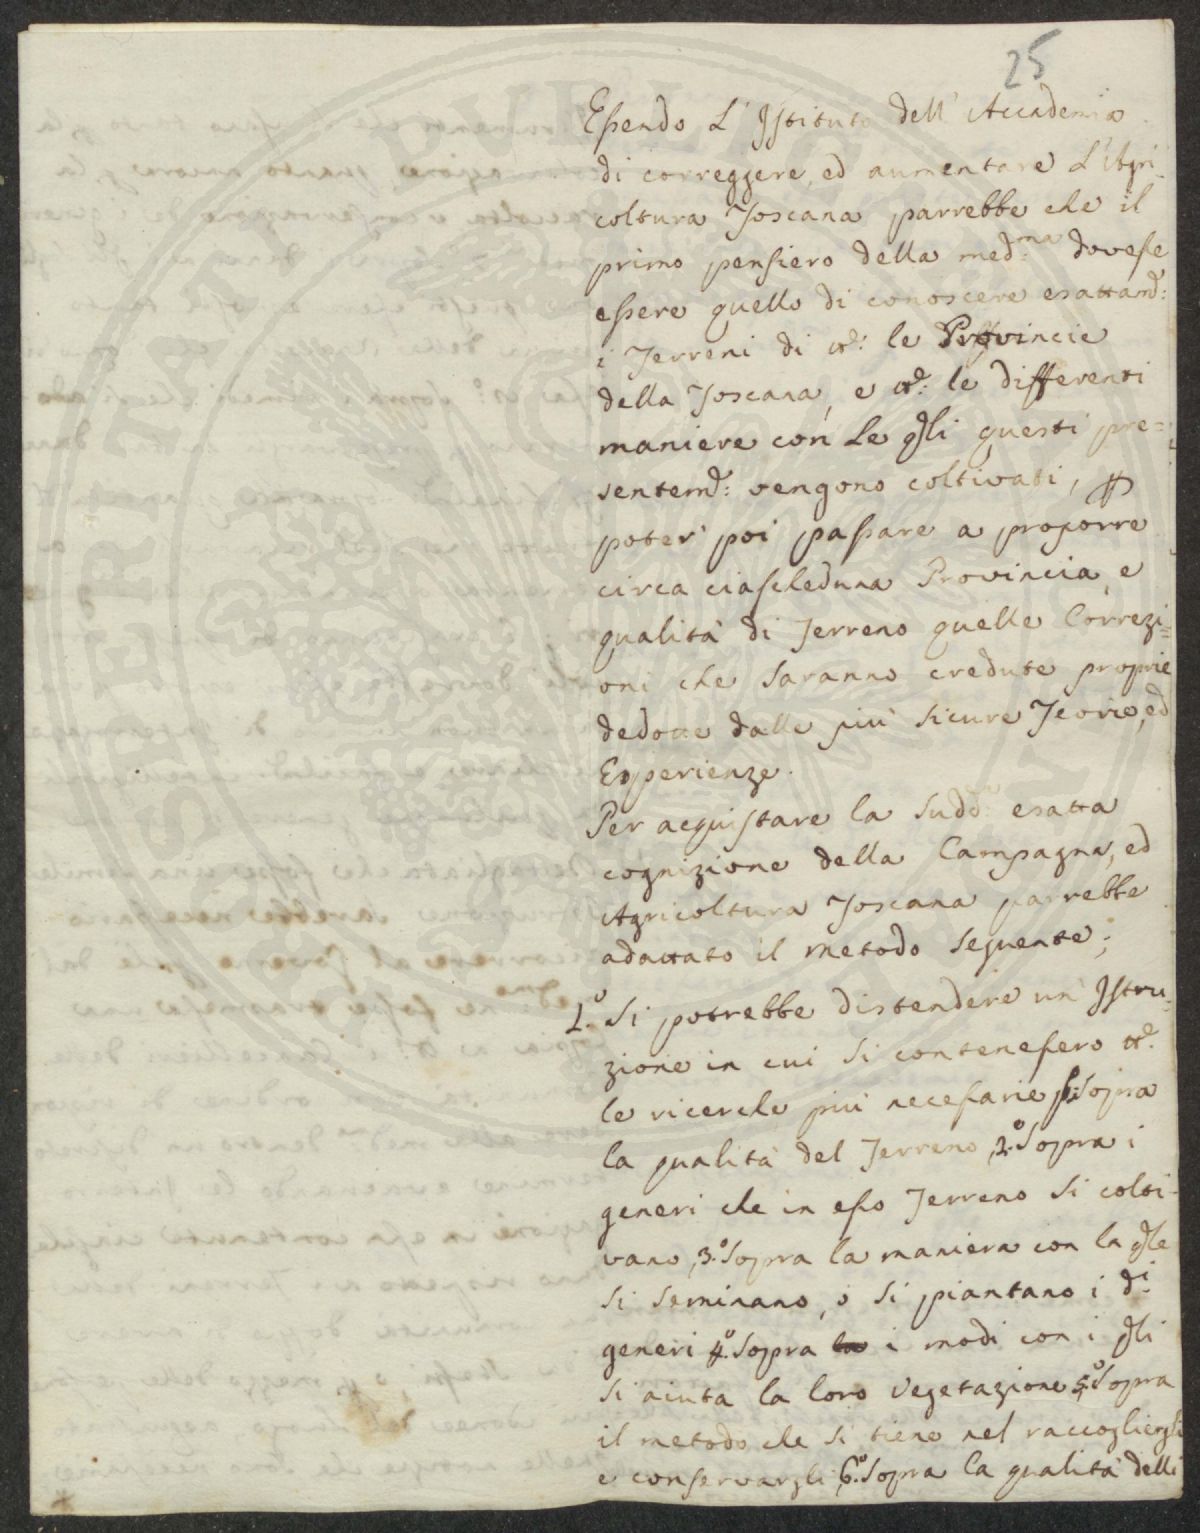 25
Essendo L'Istituto dell'Accademia
di correggere, ed aumentare L'Agri-
coltura Toscana parrebbe che il
primo pensiero della med:ma dovesse
essere quello di conoscere esattam:
i Terreni di tt:e le Provincie
della Toscana, e tt:e le differenti
maniere con Le qli questi pre=
sentem: vengono coltivati, p
poter poi passare a proporre
circa ciascheduna Provincia, e
qualità di Terreno quelle Correzi=
oni che saranno credute proprie
dedotte dalle più sicure Teorie, ed
Esperienze.
Per acquistare la sudd:a esatta
cognizione della Campagna, ed
Agricoltura Toscana parrebbe
adattato il metodo seguente;
1.o Si potrebbe distendere un Istru-
zione in cui si contenessero tt:e
le ricerche più necessarie p:o Sopra
la qualità del Terreno, 2.o Sopra i
generi che in esso Terreno si colti-
vano, 3.o Sopra la maniera con la qle
si seminano, o si piantano i d:i
generi 4.o Sopra la i modi con i qli
si aiuta la loro Vegetazione, 5.o Sopra
il metodo che si tiene nel raccogliergli
e conservargli, 6.o Sopra la qualità delli